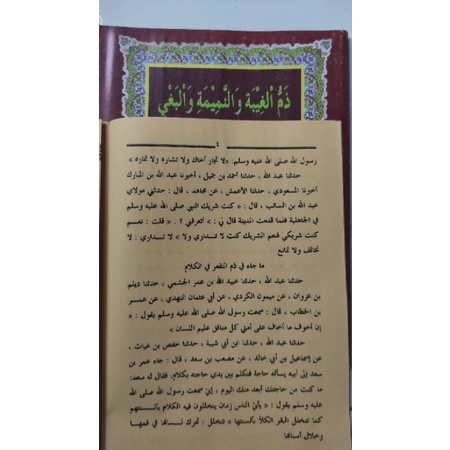 ذَمُّ الْغِيْبَة وَالنَّمِيْمَةِ وَالْبَغْيِ
٤
رسول الله صلى الله عليه وسلم: «لا تمار أخاك ولا تشاره ولا تماره»
حدثنا عبد الله ، حدثنا احمد بن جميل ، أخبرنا عبد الله بن المبارك
أخبرنا المسعودي ، حدثنا الأعمش ، عن مجاهد ، قال : حدثني مولاي
عبد الله بن السائب ، قال : « كنت شريك النبي صلى الله عليه وسلم
في الجاهلية فلما قدمت المدينة قال لي : » أتعرفني ؟ . « قلت : نعم
كنت شريكي فنعم الشريك كنت لا تداري ولا » لا تداري : لا
تخالف ولا تمانع
ما جاء في ذم التقعر في الكلام
حدثنا عبد الله ، حدثنا عبيد الله بن عمر الجشمي ، حدثنا ديلم
بن غزوان ، عن ميمون الكردي ، عن أبي عثمان النهدي ، عن عمر
بن الخطاب ، قال : سمعت رسول الله صلى الله عليه وسلم يقول : «
إن أخوف ما أخاف على أمتي كل منافق عليم اللسان »
حدثنا عبد الله ، حدثنا ابن أبي شيبة ، حدثنا حفص بن غياث ،
عن إسماعيل بن أبي خالد ، عن مصعب بن سعد ، قال : جاء عمر بن
سعد إلى أبيه يسأله حاجة فتكلم بين يدي حاجته بكلام، فقال له سعد:
ما كنت من حاجتك أبعد منك اليوم ، إني سمعت رسول الله صلى الله
عليه وسلم يقول : « يأتي الناس زمان يتخللون فيه الكلام بألسنتهم
كما تتخلل البقر الكلأ بألسنتها » تتخلل : تحرك لسانها في فمها
وخلال أسنانها